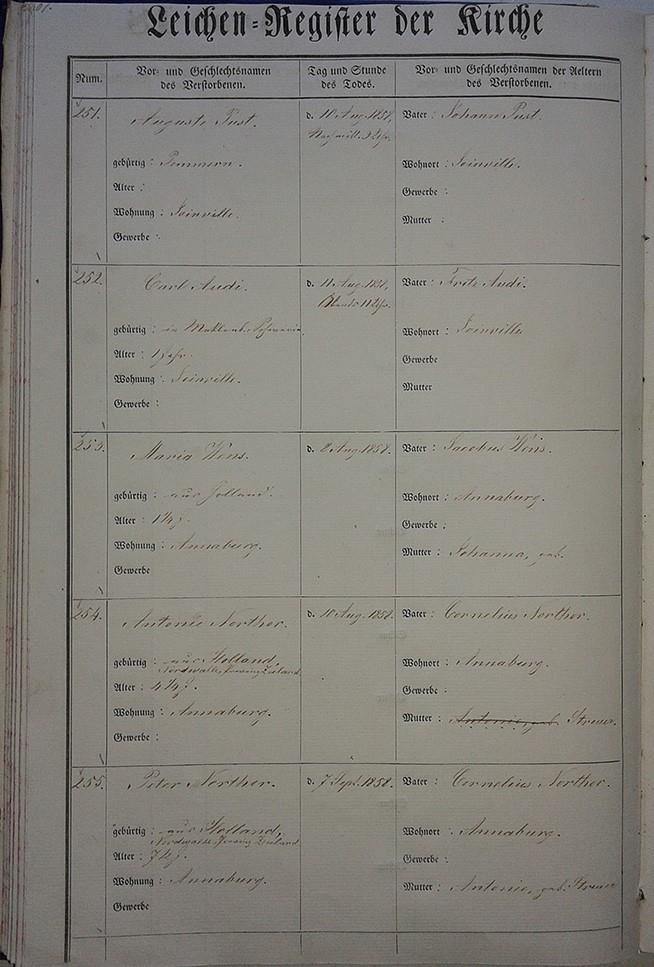 Leichen-Register der Kirche
Num.
Vor- und Geschlechtsnamen
des Verstorbenen.
Tag und Stunde
des Todes.
Vor- und Geschlechtsnamen der Aeltern
des Verstorbenen.
251.
Auguste Pust.
gebürtig : Pommern.
Alter :
Wohnung : Joinville.
Gewerbe :
d. 10 Aug. 1858,
Nachmitt. 3 Uhr.
Vater : Johann Pust.
Wohnort : Joinville.
Gewerbe :
Mutter :
252.
Carl Audi.
gebürtig : in Meklenb. Schwerin.
Alter : 1 Jahr.
Wohnung : Joinville.
Gewerbe :
d. 11 Aug. 1858,
Abends 11 Uhr.
Vater : Fritz Audi.
Wohnort : Joinville
Gewerbe
Mutter
253.
Maria Wens.
gebürtig : aus Holland.
Alter : 1¼ J.
Wohnung : Annaburg.
Gewerbe
d. 8 Aug. 1858.
Vater : Jacobus Wens.
Wohnort : Annaburg.
Gewerbe :
Mutter : Johanna, geb.
254.
Antonie Northor.
gebürtig : aus Holland,
Provinz Zeeland
Alter : 4¼ J.
Wohnung : Annaburg.
Gewerbe :
d. 10 Aug. 1858.
Vater : Cornelius Northor.
Wohnort : Annaburg.
Gewerbe :
Mutter : Antonie, geb.
255.
Peter Northor.
gebürtig : aus Holland,
Provinz Zeeland
Alter :
Wohnung : Annaburg.
Gewerbe
d. 7 Sept. 1858.
Vater : Cornelius Northor.
Wohnort : Annaburg.
Gewerbe :
Mutter : Antonie, geb.